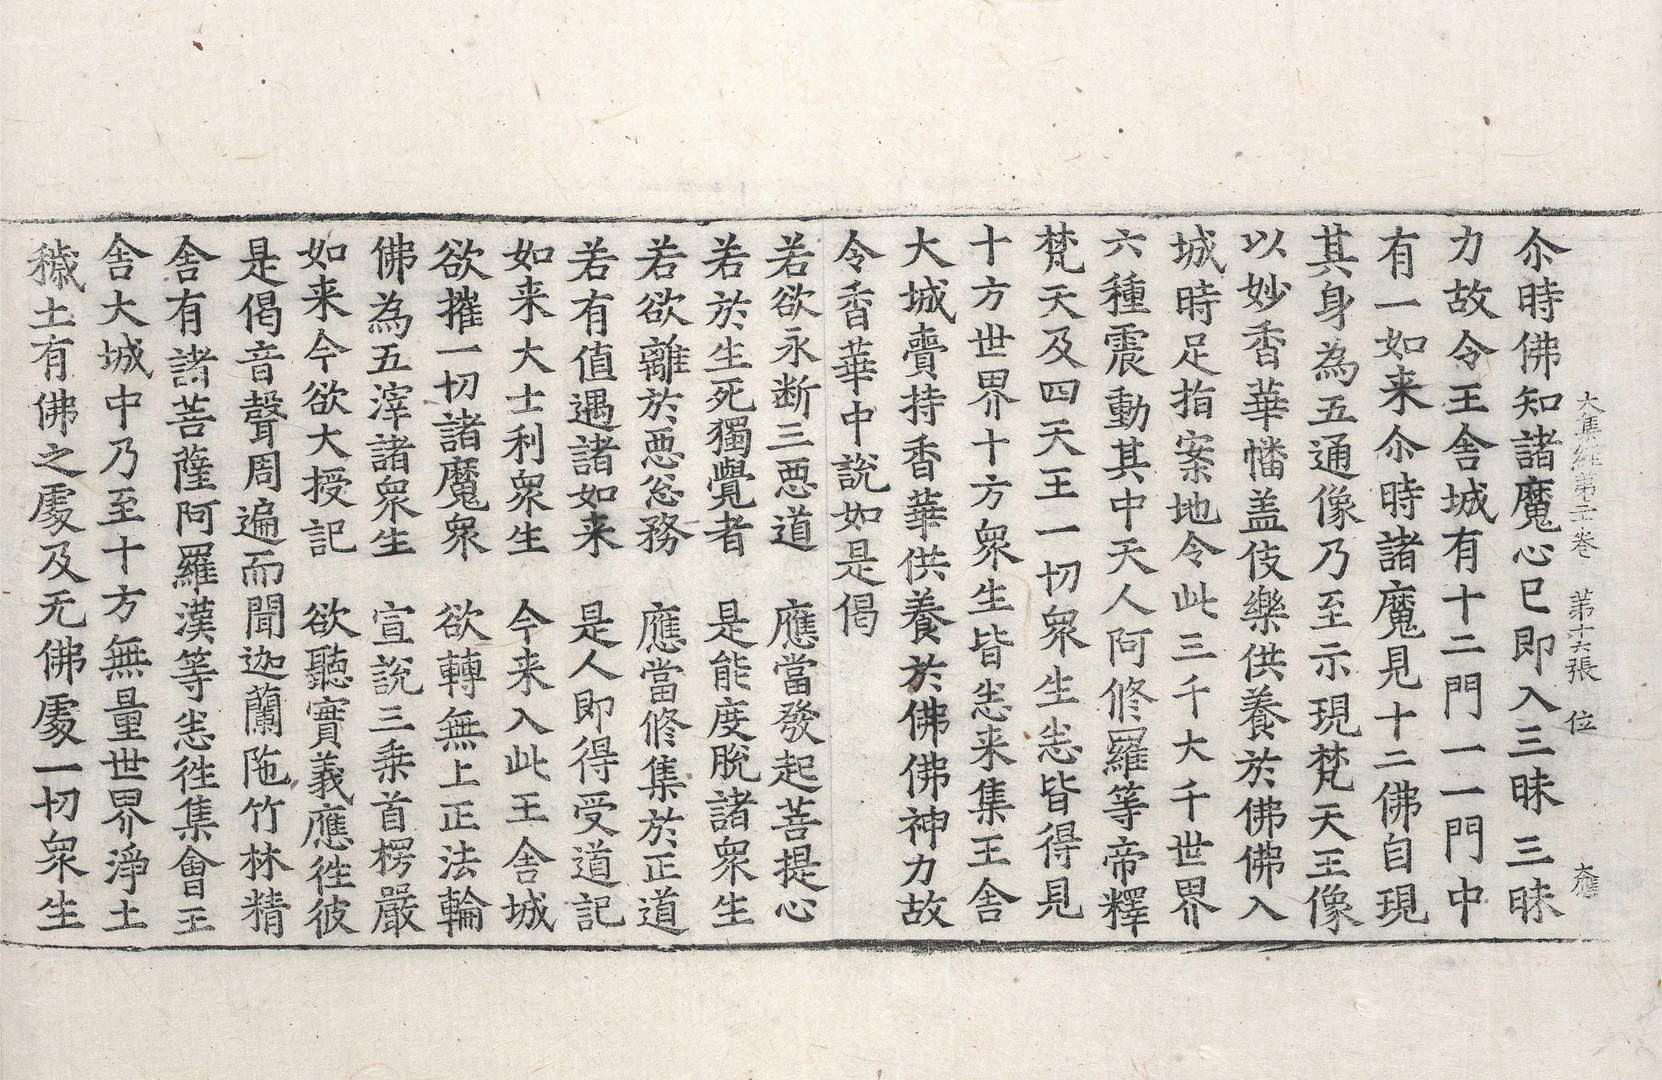 大集經第二十卷　第十六張　位
應
尒時佛知諸魔心已即入三昧三昧
力故令王舍城有十二門一一門中
有一如来尒時諸魔見十二佛自現
其身為五通像乃至示現梵天王像
以妙香華幡盖伎樂供養於佛佛入
城時足指案地令此三千大千世界
六種震動其中天人阿修羅等帝釋
梵天及四天王一切衆生悉皆得見
十方世界十方衆生皆悉来集王舍
大城賷持香華供養於佛佛神力故
令香華中說如是偈
若欲永断三惡道　應當發起菩提心
若於生死獨覺者　是能度脫諸衆生
若欲離於惡忩務　應當修集於正道
若有值遇諸如来　是人即得受道記
如来大士利衆生　今来入此王舍城
欲摧一切諸魔衆　欲轉無上正法輪
佛為五滓諸衆生　宣說三乗首楞嚴
如来今欲大授記　欲聽實義應徃彼
是偈音聲周遍而聞迦蘭陁竹林精
舍有諸菩薩阿羅漢等悉徃集會王
舍大城中乃至十方無量世界淨土
穢土有佛之處及无佛處一切衆生